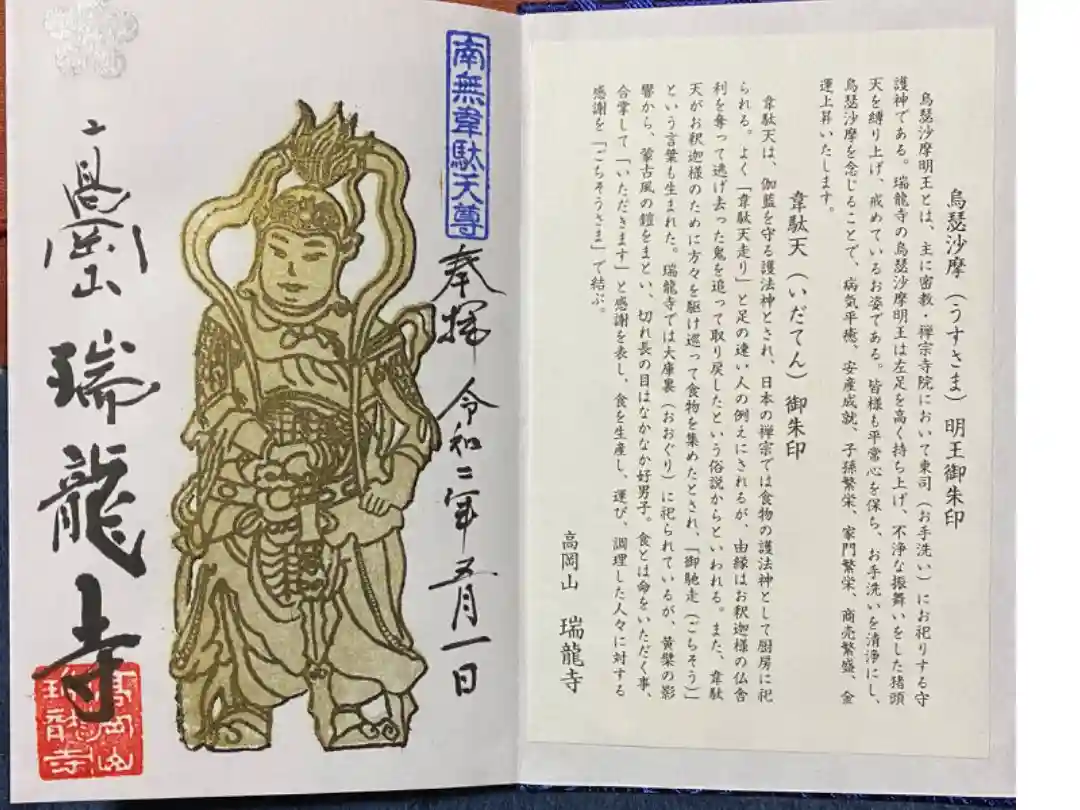 烏瑟沙摩（うすさま）明王御朱印
烏瑟沙摩明王とは、主に密教・禅宗寺院において東司（お手洗い）にお祀りする守
護神である。瑞龍寺の烏瑟沙摩明王は左足を高く持ち上げ、不浄な振舞いをした猪頭
天を縛り上げ、戒めているお姿である。皆様も平常心を保ち、お手洗いを清浄にし、
烏瑟沙摩を念じることで、病気平癒、安産成就、子孫繁栄、家門繁栄、商売繁盛、金
運上昇いたします。
韋駄天（いだてん）御朱印
韋駄天は、伽藍を守る護法神とされ、日本の禅宗では食物の護法神として厨房に祀
られる。よく「韋駄天走り」と足の速い人の例えにされるが、由縁はお釈迦様の仏舎
利を奪って逃げ去った鬼を追って取り戻したという俗説からといわれる。また、韋駄
天がお釈迦様のために方々を駆け巡って食物を集めたとされ、「御馳走（ごちそう）」
という言葉も生まれた。瑞龍寺では大庫裏（おおぐり）に祀られているが、黄檗の影
響から、蒙古風の鎧をまとい、切れ長の目はなかなか好男子。食とは命をいただく事、
合掌して「いただきます」と感謝を表し、食を生産し、運び、調理した人々に対する
感謝を「ごちそうさま」で結ぶ。
高岡山　瑞龍寺
南無韋駄天尊
奉拝 令和二年 五月一日
高岡山 瑞龍寺
高岡山
瑞龍寺